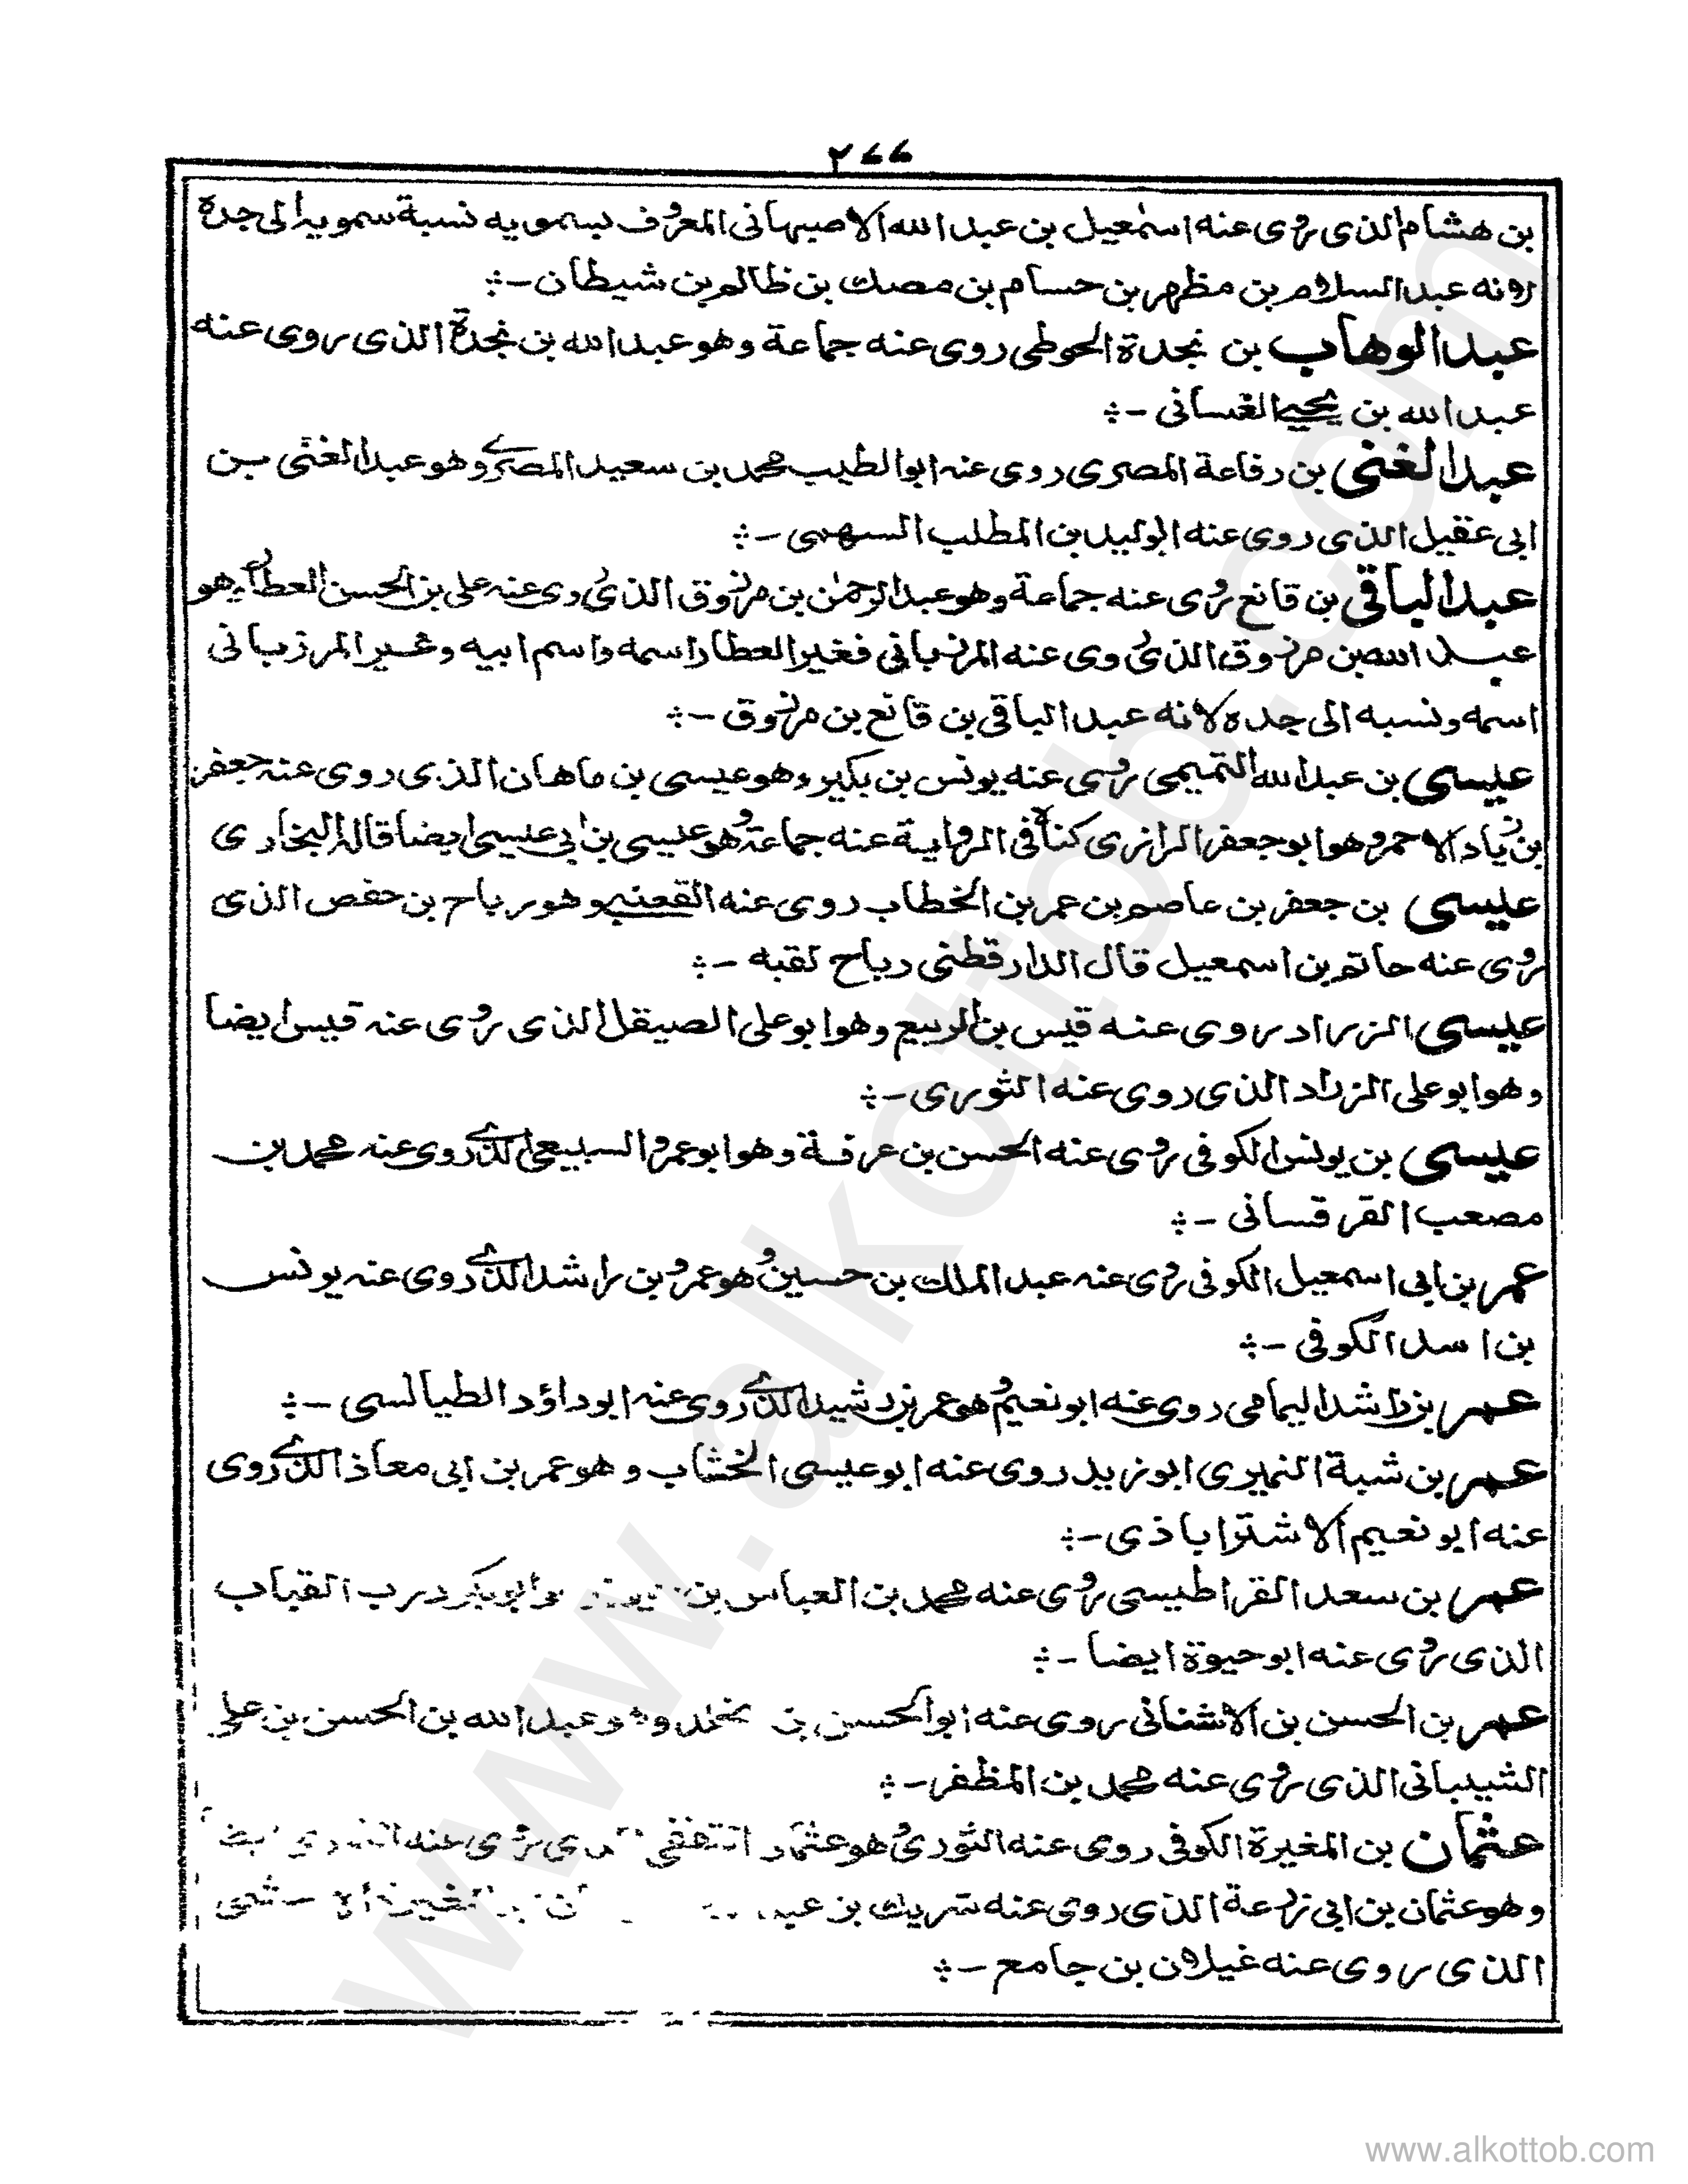 ٢٦٦
بن هشام الذى روى عنه اسمٰعيل بن عبدالله الاصبهانى المعروف بسمويه نسبة سمويه الى جده
لانه عبدالسلام بن مظهر بن حسام بن مصك بن ظالم بن شيطان -:
عبدالوهاب بن نجدة الحوطى روى عنه جماعة وهو عبدالله بن نجدة الذى روى عنه
عبدالله بن يحيى الغسانى -:
عبدالغنى بن رفاعة المصرى روى عنه ابوالطيب محمد بن سعيد المصرى وهو عبدالغنى بن
ابى عقيل الذى روى عنه الوليد بن المطلب السهمى -:
عبدالباقى بن قانع روى عنه جماعة وهو عبدالرحمٰن بن مرزوق الذى روى عنه على بن الحسن العطار وهو
عبدالله بن مرزوق الذى روى عنه المرزبانى فغير العطار اسمه واسم ابيه وغير المرزبانى
اسمه ونسبه الى جده لانه عبدالباقى بن قانع بن مرزوق -:
عيسى بن عبدالله التميمى روى عنه يونس بن بكير وهو عيسى بن ماهان الذى روى عنه جعفر
بن زياد الاحمر وهو ابو جعفر الرازى كناه فى الرواية عنه جماعة وهو عيسى بن ابى عيسى ايضا قاله البخارى
عيسى بن جعفر بن عاصم بن عمر بن الخطاب روى عنه القعنبى وهو رباح بن حفص الذى
روى عنه حاتم بن اسمعيل قال الدارقطنى رباح لقبه -:
عيسى الزراد روى عنه قيس بن الربيع وهو ابو على الصيقل الذى روى عنه قيس ايضا
وهو ابو على الزراد الذى روى عنه الثورى -:
عيسى بن يونس الكوفى روى عنه الحسن بن عرفة وهو ابو عمرو السبيعى الذى روى عنه محمد بن
مصعب القرقسانى -:
عمر بن ابى اسمعيل الكوفى روى عنه عبد الملك بن حسين وهو عمرو بن راشد الذى روى عنه يونس
بن اسد الكوفى -:
عمر بن راشد اليمامى روى عنه ابو نعيم وهو عمر بن رشيد الذى روى عنه ابو داؤد الطيالسى -:
عمر بن شبة النميرى ابو زيد روى عنه ابو عيسى الخشاب وهو عمر بن ابى معاذ الذى روى
عنه ابو نعيم الاشتراباذى -:
عمر بن سعد القراطيسى روى عنه محمد بن العباس بن ابو بكر درب القباب
الذى روى عنه ابو حيوة ايضا -:
عمر بن الحسن بن الاشنانى روى عنه ابوالحسن بن مخلد وهو عبدالله بن الحسن بن على
الشيبانى الذى روى عنه محمد بن المظفر -:
عثمان بن المغيرة الكوفى روى عنه الثورى وهو عثمان الثقفى الذى روى عنه
وهو عثمان بن ابى زرعة الذى روى عنه شريك بن
الذى روى عنه غيلان بن جامع -:
www.alkottob.com
www.alkottob.com